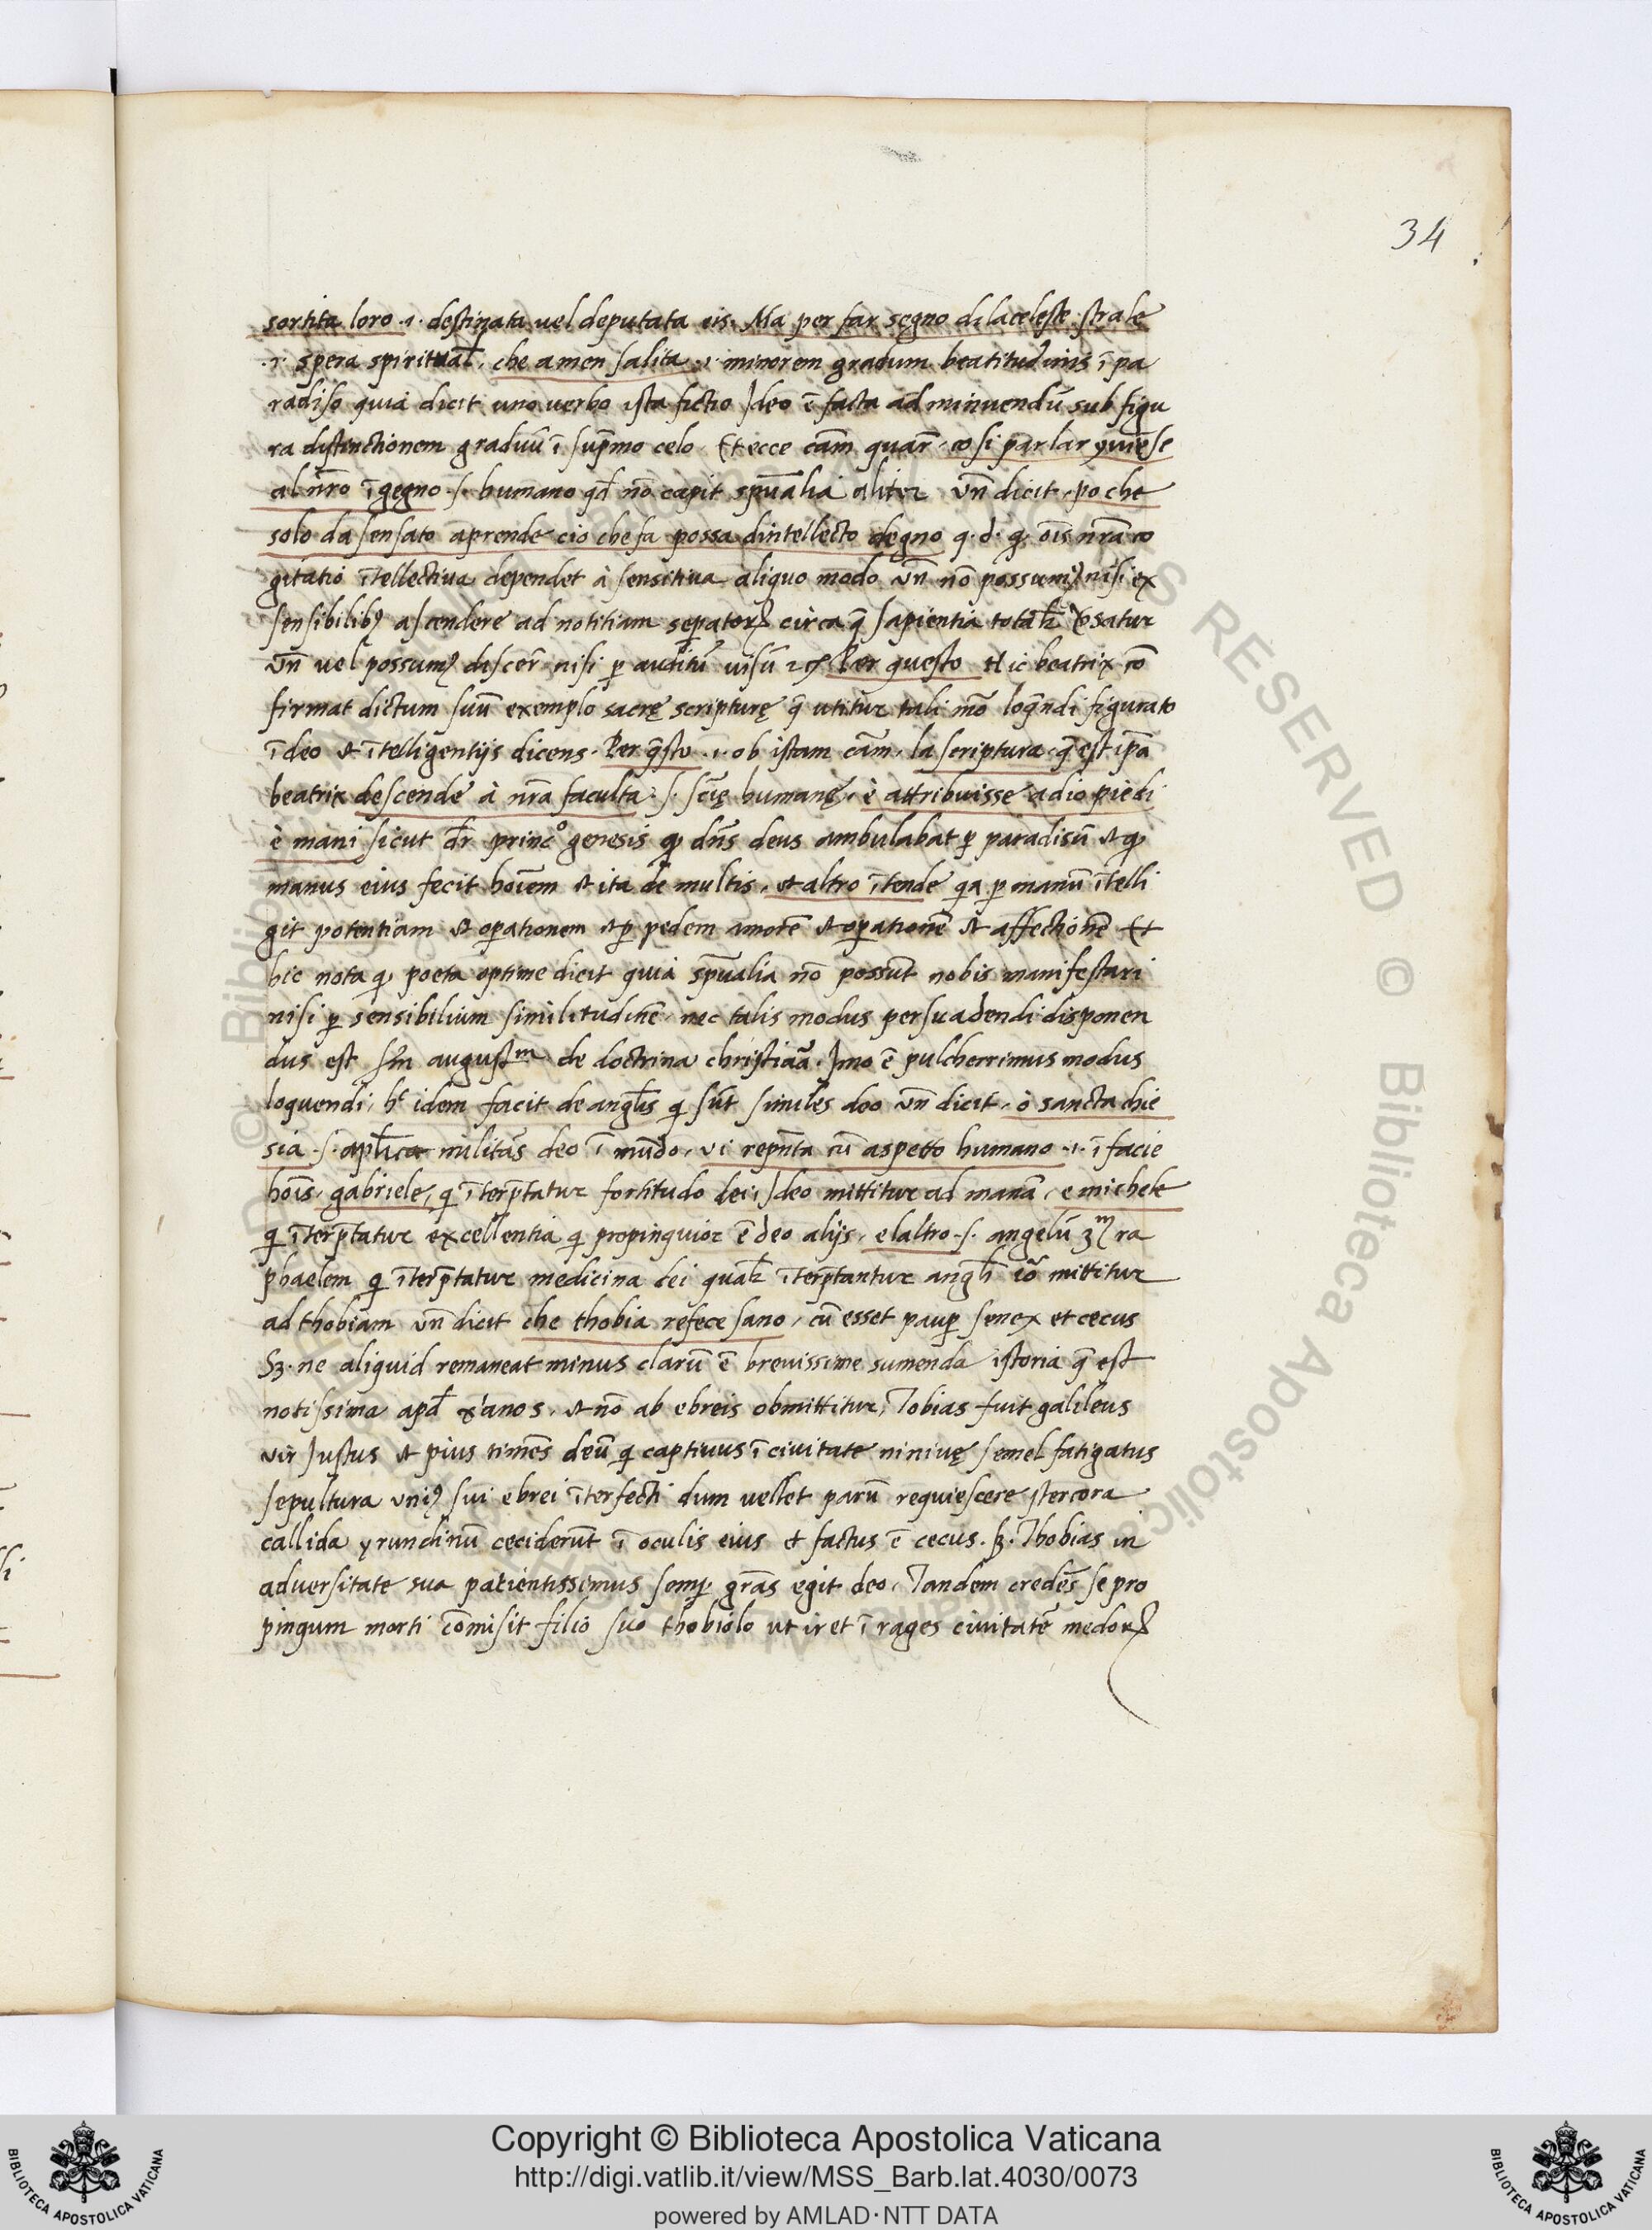 34
sortita loro .i. destinata uel deputata eis. Ma per far segno de la celeste strale
.i. spera spiritual̄, che a men salita .i. minorem gradum beatitudinis ī pa
radiso quia dicit uno uerbo ista fictio Ideo ē facta ad minuendū sub figu
ra distinctionem graduū ī sup̄mo celo Et ecce cām quar̄ cosi parlar
al nr̄o īgegno .s. humano qd̄ nō capit spūalia aliter vn̄ dicit, po che
solo da sensato aprende cio che fa possa dintellecto degno q. d. ꝙ oīs nr̄a co
gitatio ītellectiua dependet à sensitiua aliquo modo vn̄ nō possumꝰ nisi ex
sensibilibꝰ ascendere ad notitiam sepatoꝝ circa q̄ sapientia
vn̄ uel possumꝰ discer̄ nisi ꝑ auditū uisū Per questo Hic beatrix cō
firmat dictum suū exemplo sacrę scripturę q̄ utitur tali mō loq̄ndi figurato
ī deo et ītelligentijs dicens. Per q̄sto .i. ob istam cām, la scriptura q̄ est ip̄a
beatrix descende à nr̄a faculta .s. scię humanę, è attribuisse a dio piedi
è mani sicut dr̄ princº genesis ꝙ dn̄s deus ambulabat ꝑ paradisū et ꝙ
manus eius fecit hoīem et ita de multis, et altro ītende qa ꝑ manū ītelli
git potentiam et oꝑationem et ꝑ pedem amorē et oꝑationē et affectionē Et
hic nota ꝙ poeta optime dicit quia spūalia nō possūt nobis manifestari
nisi ꝑ sensibilium similitudinē, nec talis modus persuadendi disponen
dus est s̄m augustᵐ de doctrina christiāa. Imo ē pulcherrimus modus
loquendi, hᶜ idem facit de angl̄is q̄ sūt similes deo vn̄ dicit, ò sancta chie
sia .s. apl̄ica militās deo ī mūdo, ui rep̄nta cū aspetto humano .i. ī facie
hoīs, gabriele, q̄ īterp̄tatur fortitudo dei, Ideo mittitur ad mariā, e michele
q̄ īterp̄tatur excellentia q̄ propinquior ē deo alijs, e laltro .s. angelū 3ᵐ ra
phaelem q̄ īterp̄tatur medicina dei īterp̄tantur angl̄i iō mittitur
ad thobiam vn̄ dicit che thobia refece sano, cū esset pauꝑ senex et cecus
Sꝫ. ne aliquid remaneat minus clarū ē breuissime sumenda istoria q̄ est
notissima apd̄ x̄anos, et nō ab ebreis obmittitur, Tobias fuit galileus
vir Justus et pius timēs deū q̄ captiuus ī ciuitate niniuę semel fatigatus
sepultura vniꝰ sui ebrei īterfecti dum uellet parū requiescere stercora
callida yrundinū ceciderūt ī oculis eius et factus ē cecus. Thobias in
aduersitate sua patientissimus semꝑ grās egit deo, Tandem credēs se pro
pinqum morti cōmisit filio suo thobiolo ut iret ī rages ciuitatē medoꝝ
Copyright © Biblioteca Apostolica Vaticana
http://digi.vatlib.it/view/MSS_Barb.lat.4030/0073
powered by AMLAD·NTT DATA
BIBLIOTECA APOSTOLICA VATICANA
BIBLIOTECA APOSTOLICA VATICANA